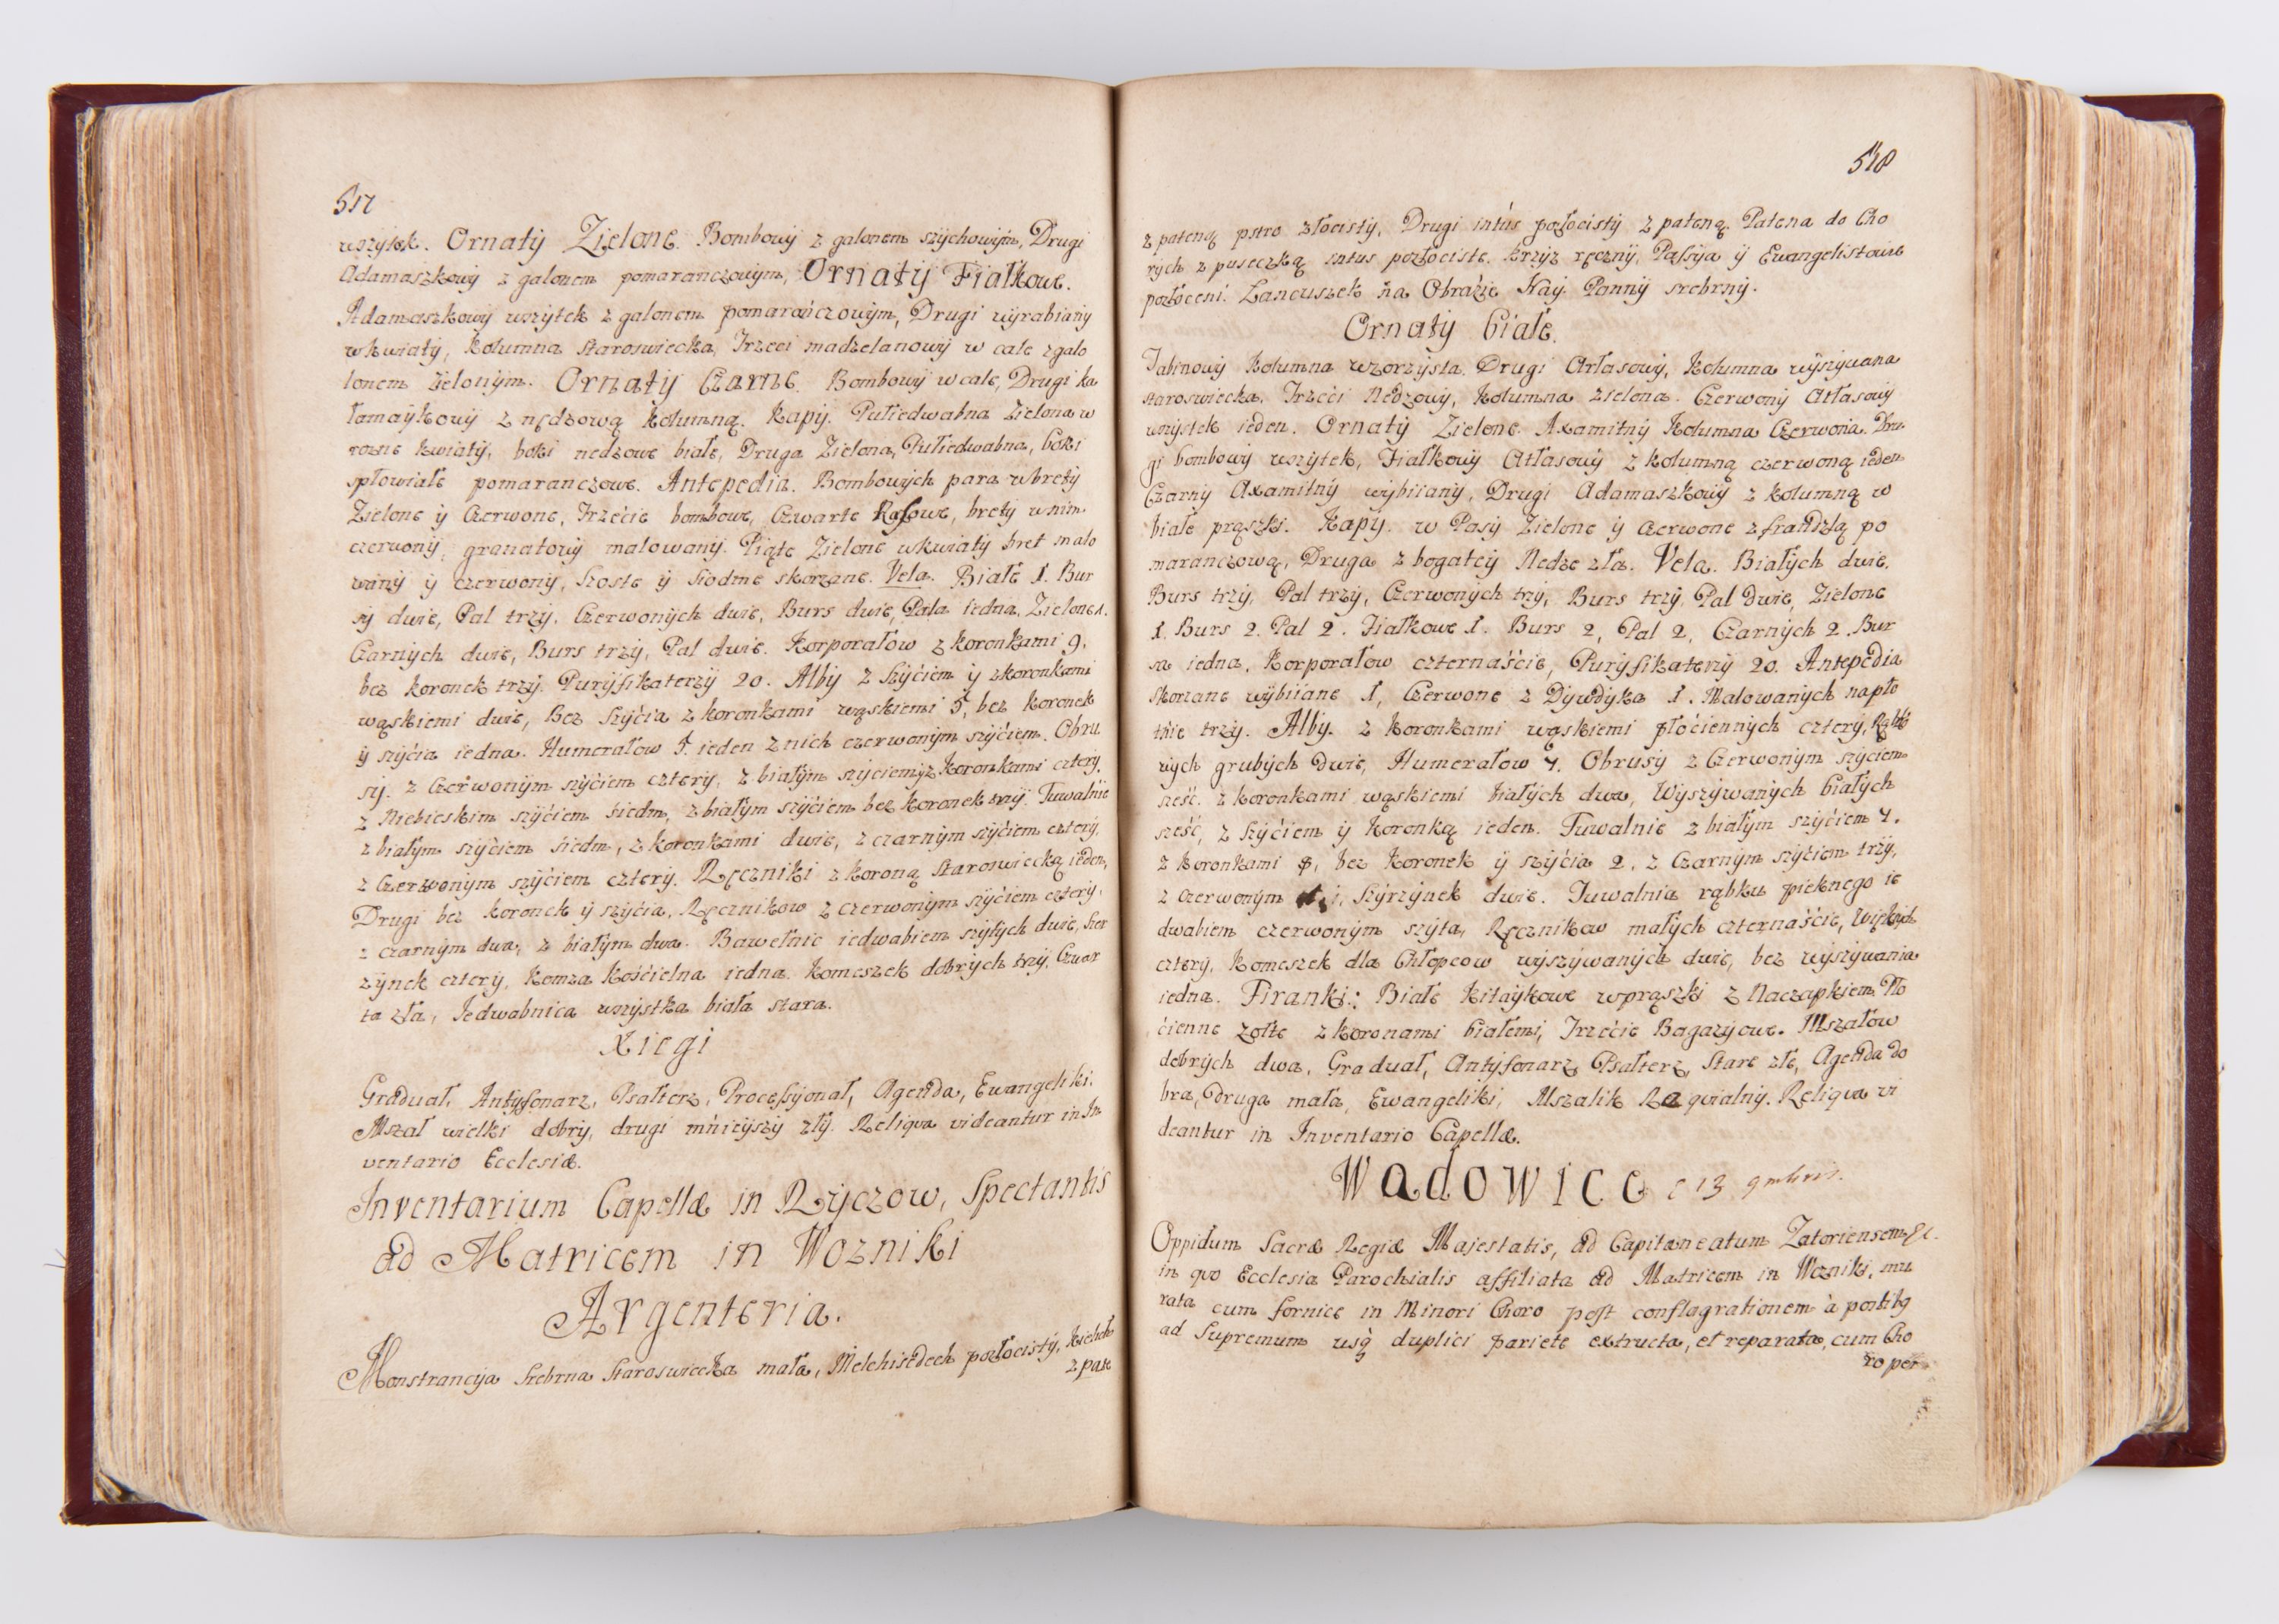 517
wszytek. Ornaty Zielone. Bombowy z galonem szychowym, Drugi
Adamaszkowy z galonem pomarańczowym, Ornaty Fiałkowe.
Adamaszkowy wszytek z galonem pomarańczowym, Drugi wyrabiany
w kwiaty, kolumna staroswiecka, Trzeci madzelanowy w cale z galo
lonem zielonym. Ornaty Czarne. Bombowy w cale, Drugi ka
łamaykowy z nędzową kolumną. Kapy. Pułiedwabna Zielona w
rozne kwiaty, boki nedzowe białe, Druga Zielona, Pułiedwabna, boki
spłowiałe pomaranczowe. Antepedia. Bombowych para w brety
Zielone y Czerwone, Trzecie bombowe, Czwarte Rasowe, brety w nim
czerwony, granatowy malowany. Piąte Zielone w kwiaty bret malo
wany y czerwony, Szoste y Siodme skorzane. Vela. Białe 1. Bur
sy dwie, Pal trzy. Czerwonych dwie, Burs dwie, Pala iedna, Zielone 1.
Czarnych dwie, Burs trzy, Pal dwie. Korporałow z koronkami 9.
bez koronek trzy. Puryfikaterzy 20. Alby z Szyciem y z koronkami
wąskiemi dwie, Bez Szycia z koronkami wąskiemi 5, bez koronek
y szycia iedna. Humerałow 5. ieden z nich czerwonym szyciem. Obru
sy. z Czerwonym szyciem cztery, z białym szyciem y z koronkami cztery,
z Niebieskim szyciem siedm, z białym szyciem bez koronek trzy. Tuwalnie
z białym szyciem siedm, z koronkami dwie, z czarnym szyciem cztery,
z Czerwonym szyciem cztery. Ręczniki z koroną staroswiecką ieden,
Drugi bez koronek y szycia, Ręcznikow z czerwonym szyciem cztery,
z czarnym dwa, z białym dwa. Bawełnic iedwabiem szytych dwie, Szer
zynek cztery, Komza kościelna iedna. Komeszek dobrych trzy, Czwar
ta zła, Jedwabnica wszystka biała stara.
Xiegi
Graduał, Antyfonarz, Psałterz, Processyonał, Agenda, Ewangeliki.
Mszał wielki dobry, drugi mnieyszy zły. Reliqva videantur in In
ventario Ecclesiæ.
Inventarium Capellæ in Ryczow, Spectantis
ad Matricem in Wozniki
Argenteria.
Monstrancya Srebrna Staroswiecka mała, Melchisedech pozłocisty, Kielich
z pate
518
z pateną pstro złocisty, Drugi intus pozłocisty z pateną. Patena do Cho
rych z puseczką intus pozłociste. Krzyz ręczny, Passya y Ewangelistowie
pozłoceni. Lancuszek na Obrazie Nay. Panny srebrny.
Ornaty białe.
Tabinowy Kolumna wzorzysta. Drugi Atłasowy, Kolumna wyszywana
staroswiecka, Trzeci Nedzowy, Kolumna zielona. Czerwony Atłasowy
wszystek ieden. Ornaty Zielone. Axamitny Kolumna Czerwona. Dru
gi bombowy wszytek, Fiałkowy Atłasowy z kolumną czerwoną ieden
Czarny Axamitny wybiiany, Drugi Adamaszkowy z kolumną w
białe prąszki. Kapy. w Pasy Zielone y czerwone z frandzlą po
maranczową, Druga z bogatey Nedze zła. Vela. Białych dwie.
Burs trzy, Pal trzy, Czerwonych trzy, Burs trzy, Pal dwie, Zielone
1. Burs 2. Pal 2. Fiałkowe 1. Burs 2, Pal 2, Czarnych 2. Bur
sa iedna. Korporałow czternaście, Puryfikaterzy 20. Antepedia
Skorzane wybiiane 1, Czerwone z Dywdyka 1. Malowanych na pło
tnie trzy. Alby. z koronkami wąskiemi płóciennych cztery,
wych grubych dwie, Humerałow 7. Obrusy z Czerwonym szyciem
sześć. z koronkami wąskiemi białych dwa, Wyszywanych białych
sześć, z Szyciem y Koronką ieden. Tuwalnie z białym szyciem 7.
z koronkami 8, bez koronek y szycia 2. z Czarnym szyciem trzy,
z czerwonym Szyrzynek dwie. Tuwalnia rąbku pieknego ie
dwabiem czerwonym szyta, Ręcznikow małych czternaście, Większych
cztery, Komeszek dla Chłopcow wyszywanych dwie, bez wyszywania
iedna. Firanki: Białe kitaykowe w prąszki z Naczapkiem, Pło
cienne zołte z koronami białemi, Trzecie Bagazyowe. Mszałow
dobrych dwa, Graduał, Antyfonarz, Psałterz, Stare złe, Agenda do
bra, druga mała, Ewangeliki, Mszalik Reqvialny. Reliqva vi
deantur in Inventario Capellæ.
Wadowice e 13 9mbris.
Oppidum Sacræ Regiæ Majestatis, ad Capitaneatum Zatoriensem &c.
in qvo Ecclesia Parochialis affiliata ad Matricem in Wozniki, mu
rata cum fornice in Minori Choro post conflagrationem à portibg
ad Supremum usq duplici pariete extructa, et reparata, cum Cho
ro per